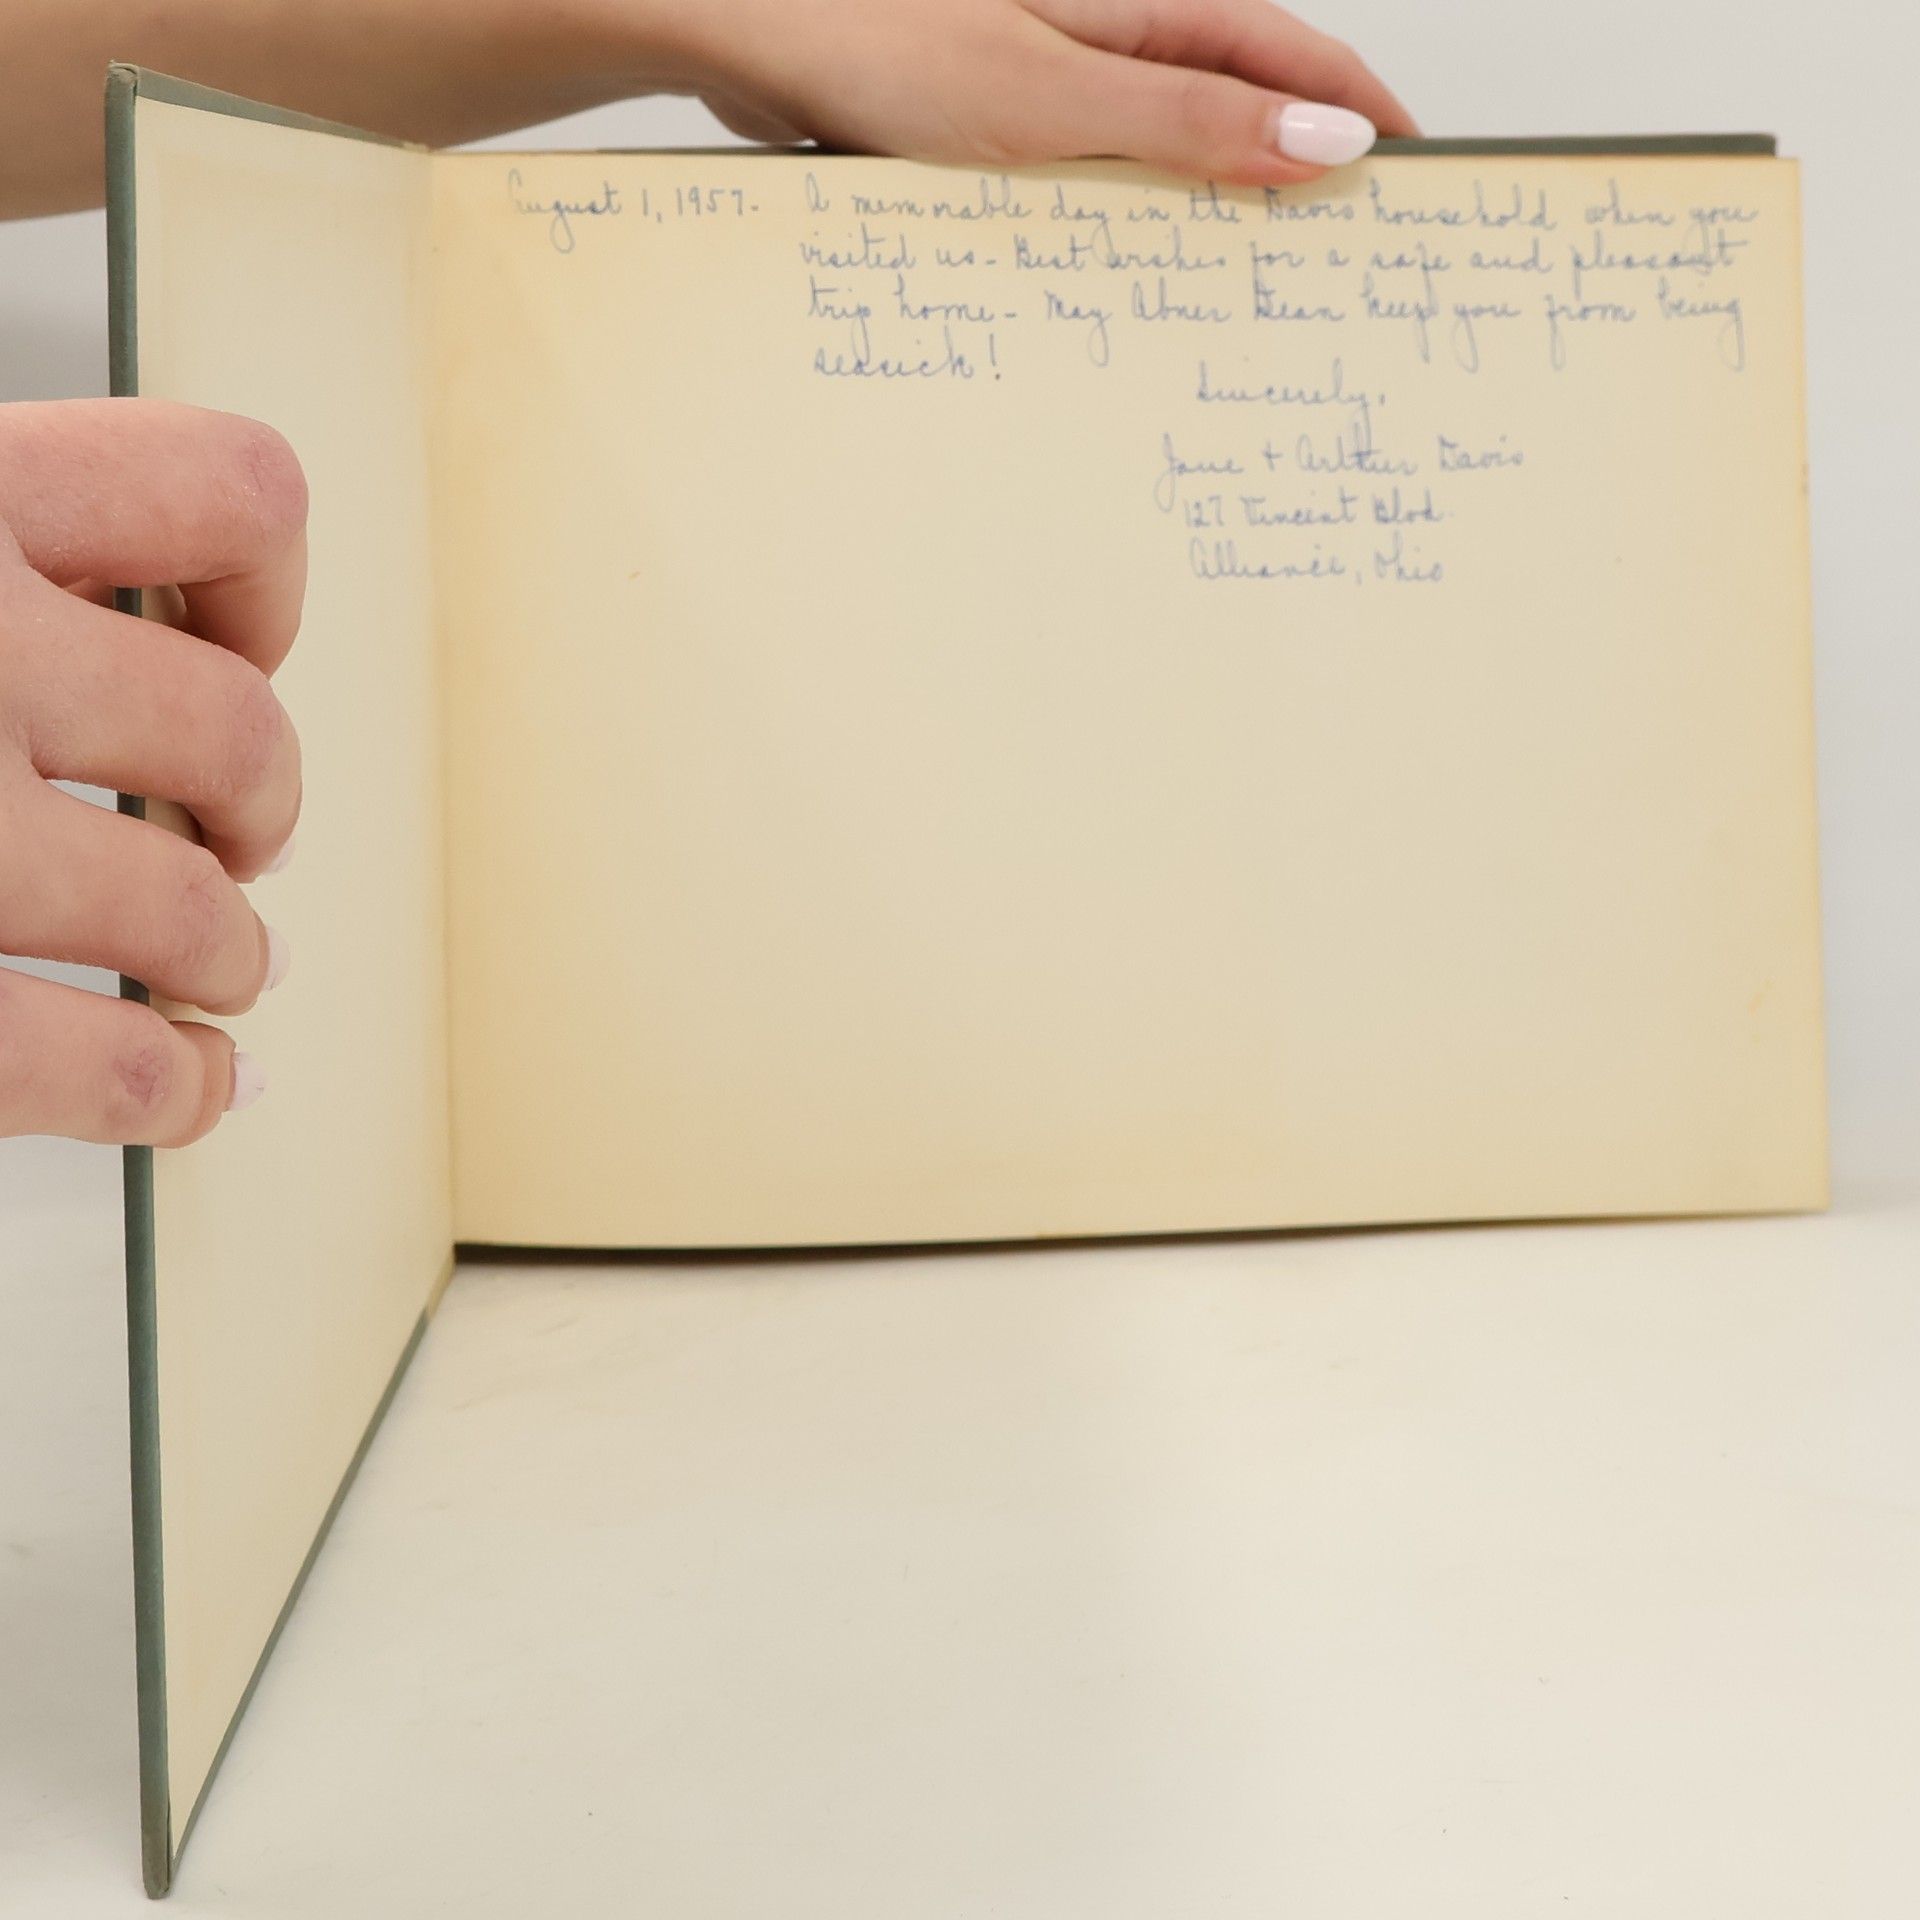 August 1, 1957. - A memorable day in the Davis household when you
visited us - Best wishes for a safe and pleasant
trip home - May Abner Dean keep you from being
seasick!
Sincerely,
Jane + Arthur Davis
127 Vincent Blvd.
Alliance, Ohio